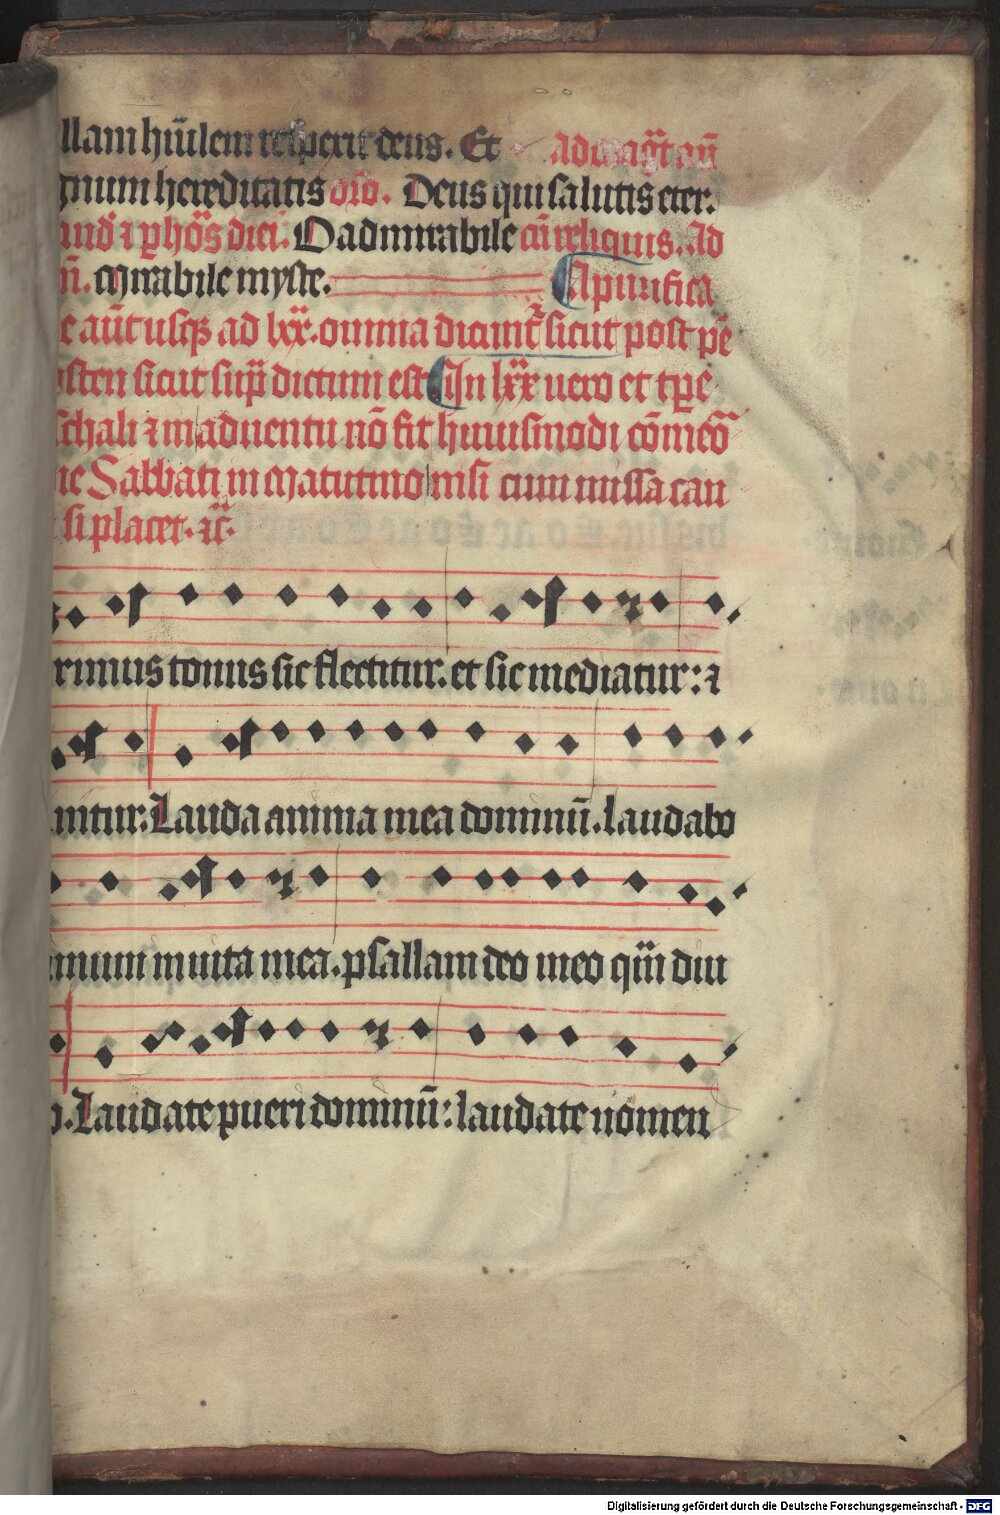 llam hūilem respexit deus. Et ad magt an̄
gnum hereditatis oro. Deus qui salutis eter.
O admirabile cū reliquis. Ad
n̄. Mirabile myste. A purifica
e aūt usqʒ ad lxx. omnia dicunt sicut post pe
sten sicut sup̄ dictum est In lxx uero et tp̄e
schali ⁊ in aduentu nō fit huiusmodi cōmeō
ne Sabbati in Matutino nisi cum missa can
si placet. ⁊c.
rimus tonus sic flectitur. et sic mediatur: ⁊
initur: Lauda anima mea dominū. laudabo
minum in uita mea. psallam deo meo qm̄ diu
o. Laudate pueri dominū: laudate nomen
Digitalisierung gefördert durch die Deutsche Forschungsgemeinschaft - DFG